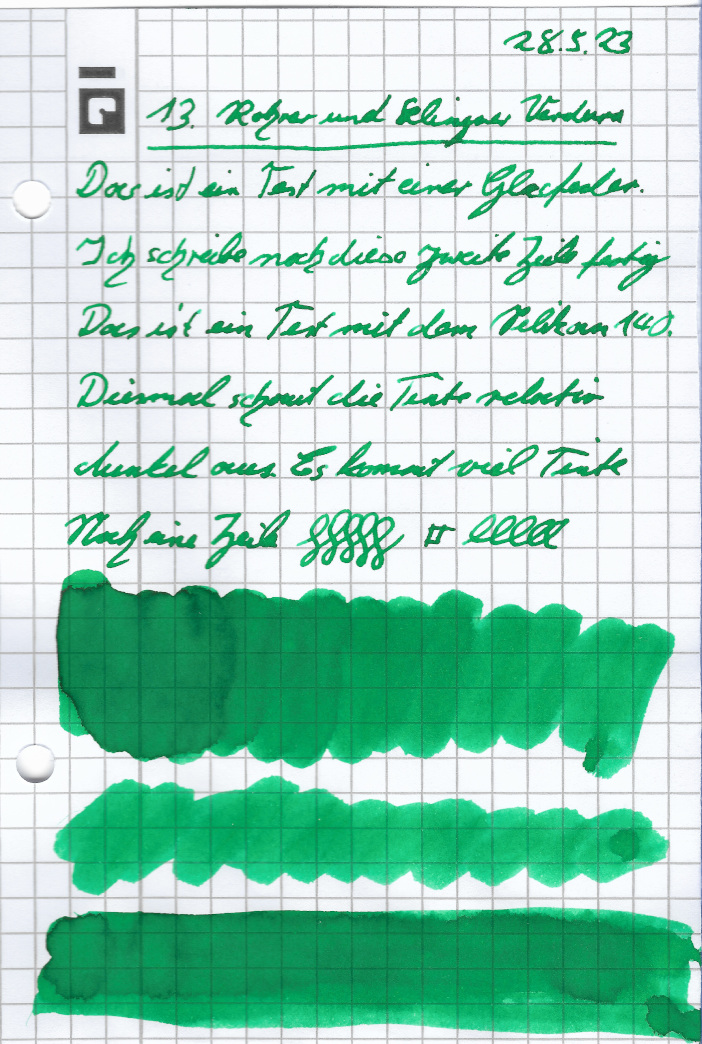 28.5.23
13. Rohrer und Klingner Verdura
Das ist ein Test mit einer Glasfeder.
Ich schreibe noch diese zweite Zeile fertig
Das ist ein Test mit dem Pelikan 140.
Diesmal schaut die Tinte relativ
dunkel aus. Es kommt viel Tinte
Noch eine Zeile